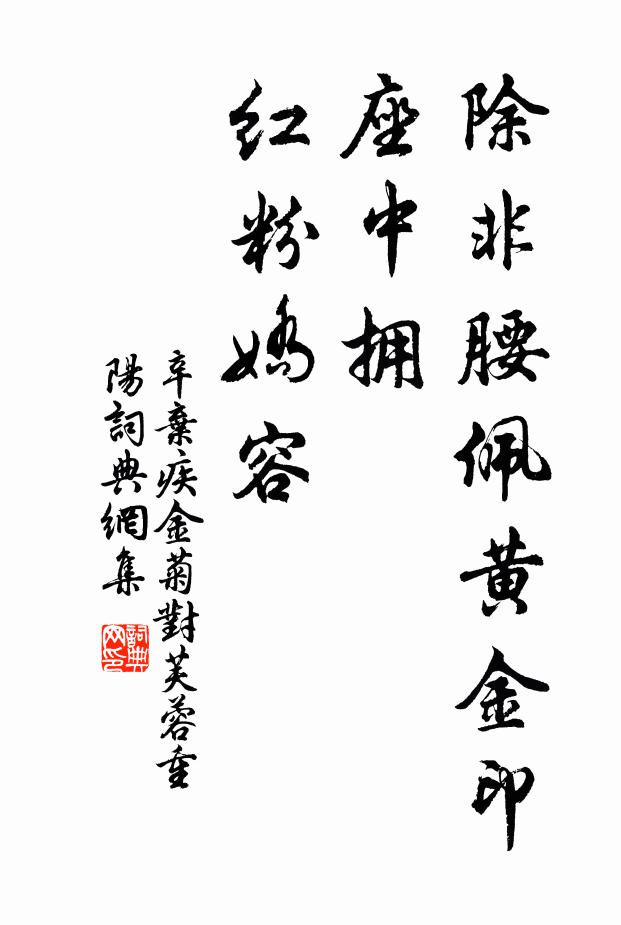 除非腰佩黄金印
座中拥
红粉娇容
辛棄疾金菊對芙蓉重
陽詞典網集
詞典网印